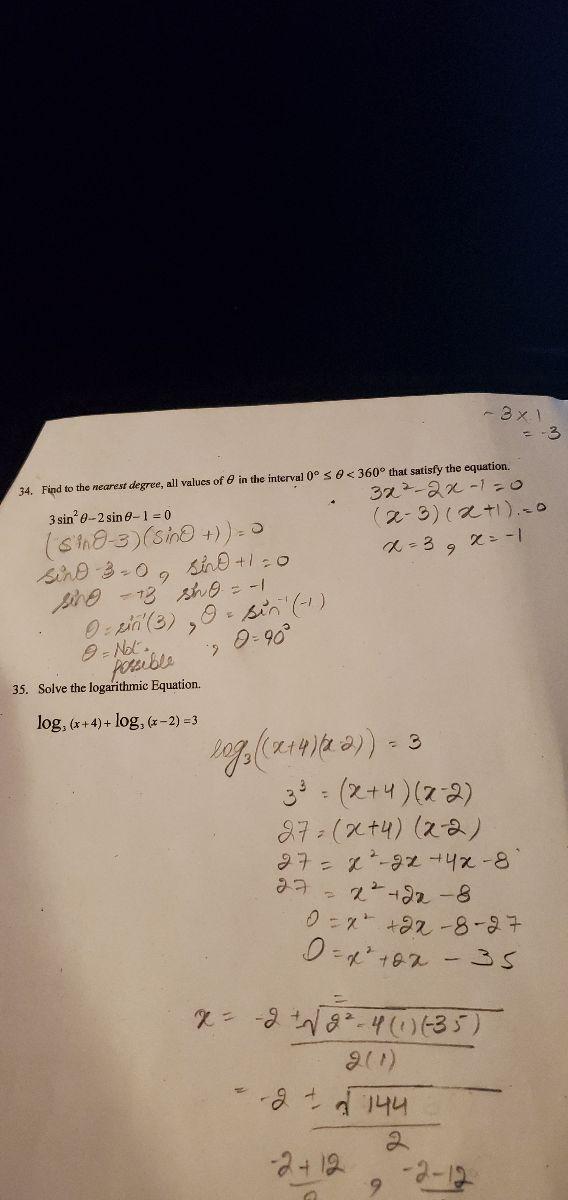 - 3 x 1
= -3
34. Find to the nearest degree, all values of θ in the interval 0° ≤ θ < 360° that satisfy the equation.
3 sin² θ – 2 sin θ – 1 = 0
(sinθ-3)(sinθ+1)=0
sinθ-3=0, sinθ+1=0
sinθ = +3 sinθ = -1
θ = sin⁻¹(3), θ = sin⁻¹(-1)
θ = Not possible, θ = 90°
3x²-2x-1=0
(x-3)(x+1).=0
x=3, x=-1
35. Solve the logarithmic Equation.
log₃ (x+4) + log₃ (x–2) =3
log₃((x+4)(x-2)) = 3
3³ = (x+4)(x-2)
27 = (x+4)(x-2)
27 = x²-2x+4x-8
27 = x²+2x-8
0 = x²+2x-8-27
0 = x²+2x-35
x = -2 ±√2²-4(1)(-35)
2(1)
= -2 ± √144
2
-2+12 , -2-12